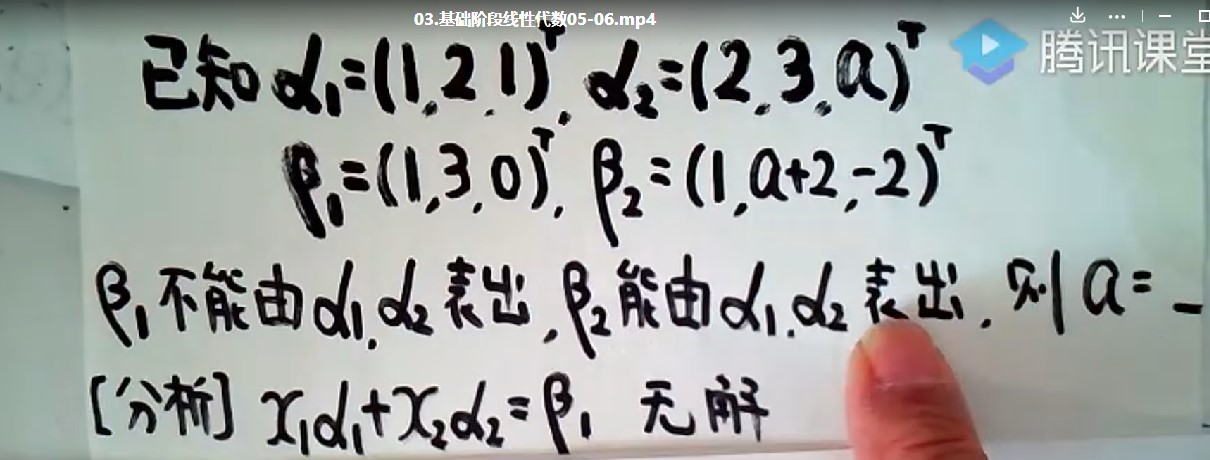 03.基础阶段线性代数05-06.mp4
腾讯课堂
已知 α₁=(1,2,1)ᵀ, α₂=(2,3,a)ᵀ
β₁=(1,3,0)ᵀ, β₂=(1,a+2,-2)ᵀ
β₁不能由α₁,α₂表出,β₂能由α₁,α₂表出,则a=_
[分析] x₁α₁+x₂α₂=β₁ 无解